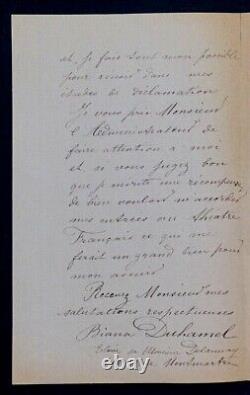 et je fais tout mon possible
pour réussir dans mes
études de déclamation.
Je vous prie Monsieur
l'Administrateur de
faire attention à moi
et si vous jugez bon
que je mérite une récompense
de bien vouloir m'accorder
mes entrées au Théâtre
Français ce qui me
ferait un grand bien pour
mon avenir
Recevez Monsieur mes
salutations respectueuses
Biana Duhamel
Elève de Monsieur Delaunay
Montmartre